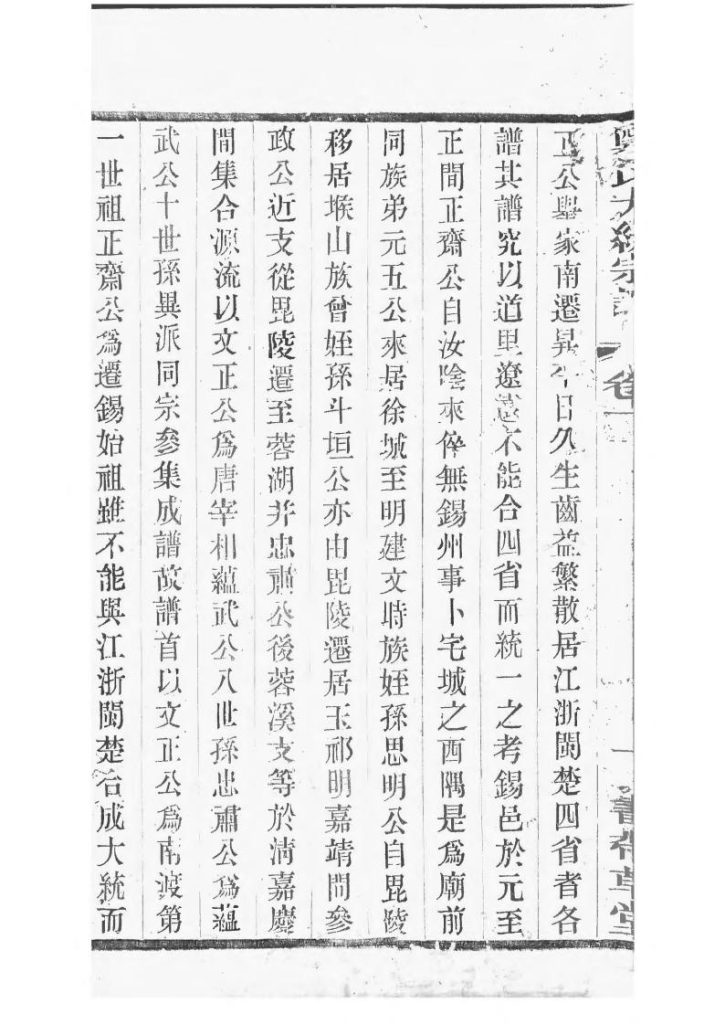 鄭氏大統宗譜 卷一 一 書帶草堂
正公舉家南遷昇今日久生齒益繁散居江浙閩楚四省者各
譜其譜究以道里遼遠不能合四省而統一之考錫邑於元至
正間正齋公自汝陰來倅無錫州事卜宅城之西隅是為廟前
同族弟元五公來居徐城至明建文時族姪孫思明公自毘陵
移居堠山族曾姪孫斗垣公亦由毘陵遷居玉祁明嘉靖間參
政公近支從毘陵遷至蓉湖幷忠肅公後蓉溪支等於淸嘉慶
間集合源流以文正公爲唐宰相蘊武公八世孫忠肅公爲蘊
武公十世孫異派同宗參集成譜故譜首以文正公爲南渡第
一世祖正齋公爲遷錫始祖雖不能與江浙閩楚合成大統而